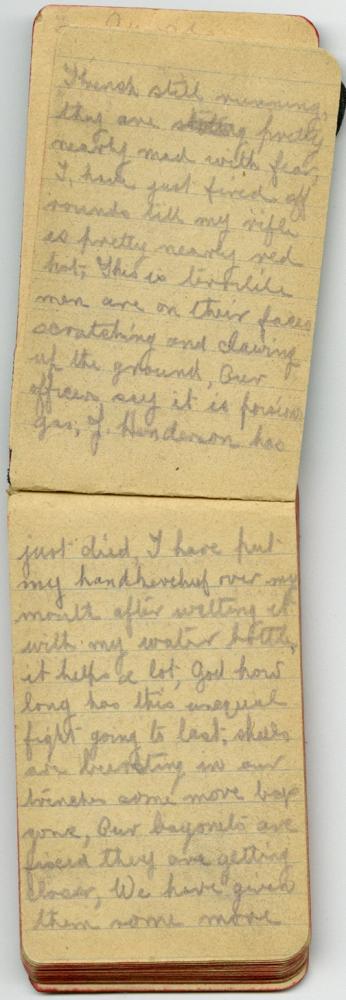 French still running,
they are pretty
nearly mad with fear,
I, have just fired off
rounds till my rifle
is pretty nearly red
hot, This is terrible
men are on their faces
scratching and clawing
up the ground, Our
officers say it is poison
gas, J. Henderson has
just died, I have put
my handkerchief over my
mouth after wetting it
with my water bottle,
it helps a lot, God how
long has this unequal
fight going to last, shells
are bursting in our
trenches some more boys
gone, Our bayonets are
fixed they are getting
closer, We have given
them some more